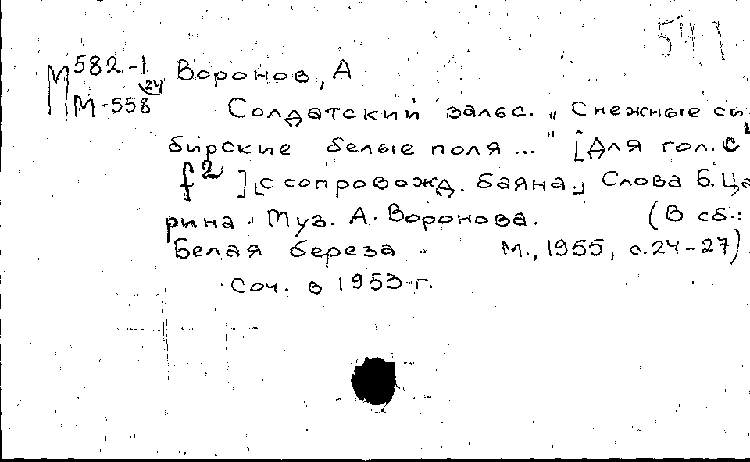 541
М 582-1 Воронов, А
24
М-558
Солдатский вальс. „Снежные си-
бирские белые поля..." [Для гол. с¹
f² ] [с сопровожд. баяна.] Слова Б. Ца
рина. Муз. А. Воронова. (В сб.:
Белая береза. М., 1955, с. 24-27)
Соч. в 1953 г.